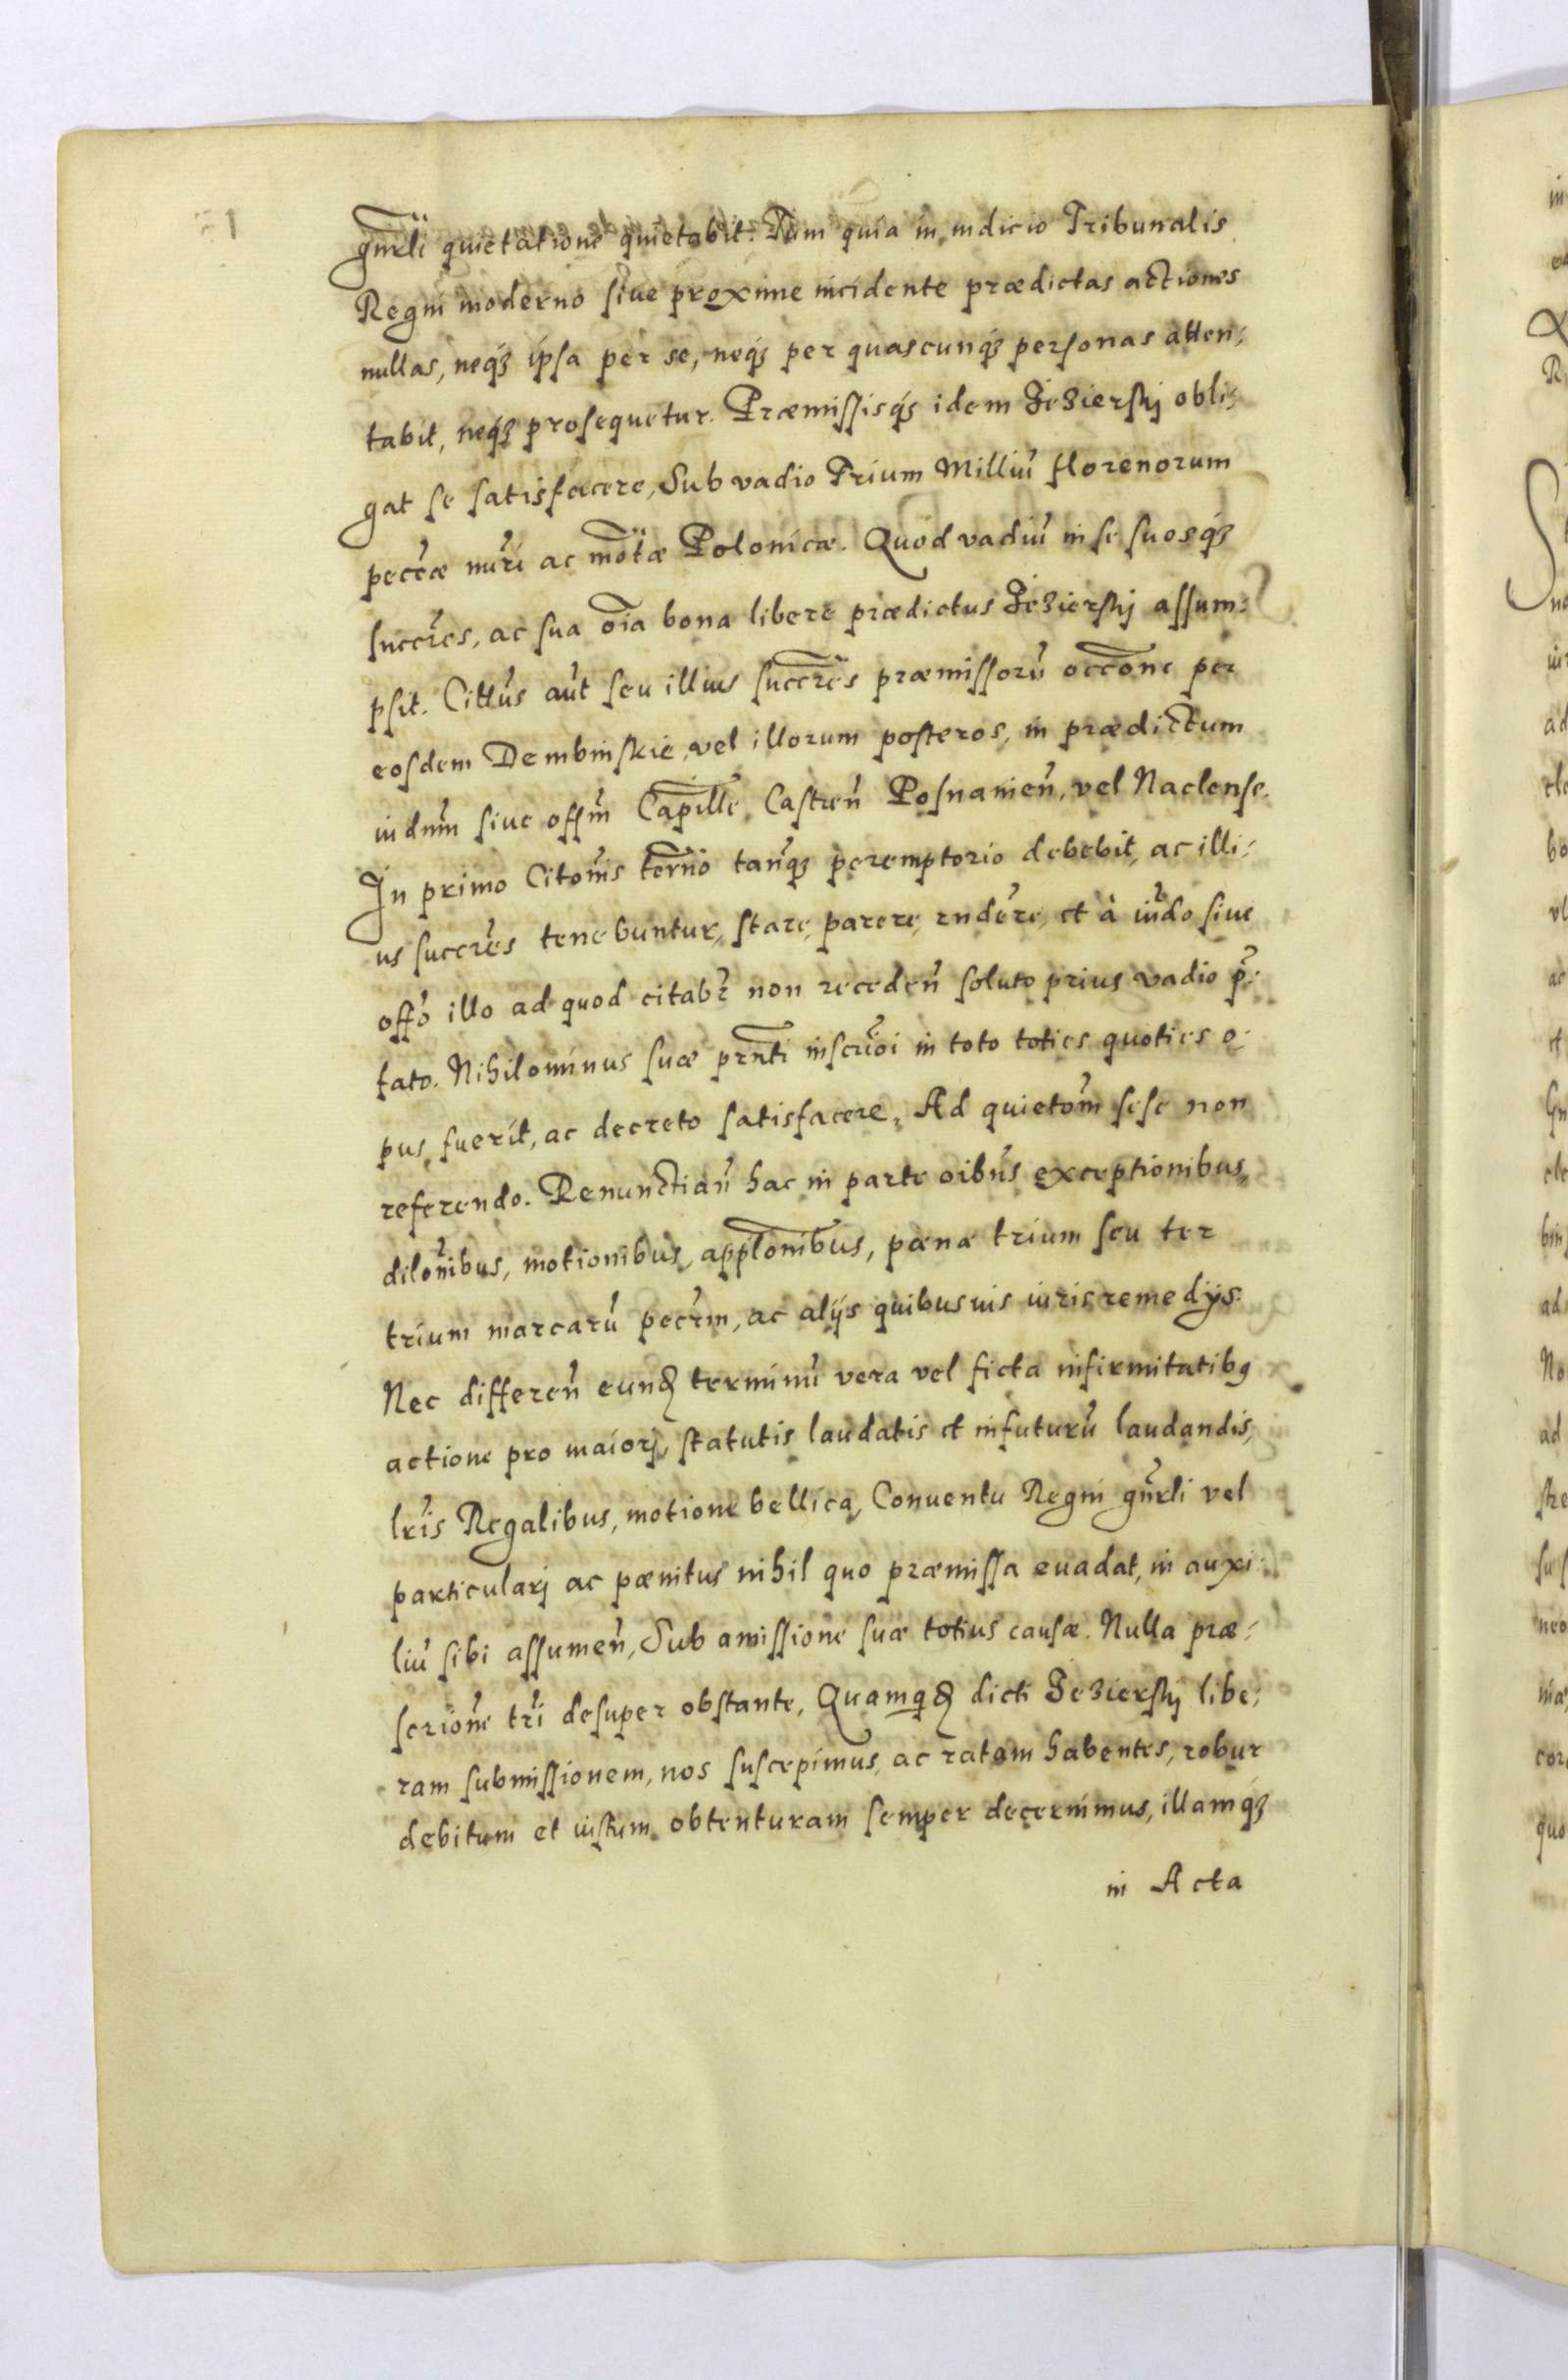 gnrli quietatione quietabit. Tum quia in iudicio Tribunalis
Regni moderno siue proxime incidente prædictas actiones
nullas, neq₃ ipsa per se, neq₃ per quascunq₃ personas atten:
tabit, neq₃ prosequetur. Præmissisq₃ idem Jezierskj obli:
gat se satisfacere, Sub vadio Trium Milliũ florenorum
peccæ nũri ac motæ Polonicæ. Quod vadiũ in se suosq₃
succres, ac sua oia bona libere prædictus Jezierskj assum:
psit. Cittus aut seu illius succres præmissorũ occone per
eosdem Dembinskie, vel illorum posteros, in prædictum
iudnm siue offm Capille, Castren Posnanien, vel Naclense.
In primo Citonis termo tanq₃ peremptorio debebit, ac illi:
us succres tenebuntur, stare, parere, rndere, et à iudo siue
offo illo ad quod citabr non receden soluto prius vadio p:
tato. Nihilominus suæ prnti inscrioi in toto toties quoties o:
pus fuerit, ac decreto satisfacere. Ad quietom sese non
referendo. Renunctian hac in parte oibus exceptionibus,
dilonibus, motionibus, applonibus, pæna trium seu ter
trium marcarũ pecrm, ac alijs quibusuis iuris remedijs.
Nec differen eund terminũ vera vel ficta infirmitatib9
actione pro maiorj, statutis laudatis et infuturũ laudandis,
lris Regalibus, motione bellica, Conuentu Regni gnrli vel
particularj ac pænitus nihil quo præmissa euadat, in auxi:
liũ sibi assumen, Sub amissione suæ totius causæ. Nulla præ:
scrione tri desuper obstante, Quamq₃d dicti Jezierskj libe:
ram submissionem, nos suscepimus, ac ratam habentes, robur
debitum et iustum obtenturam semper decernimus, illamq₃
in Acta